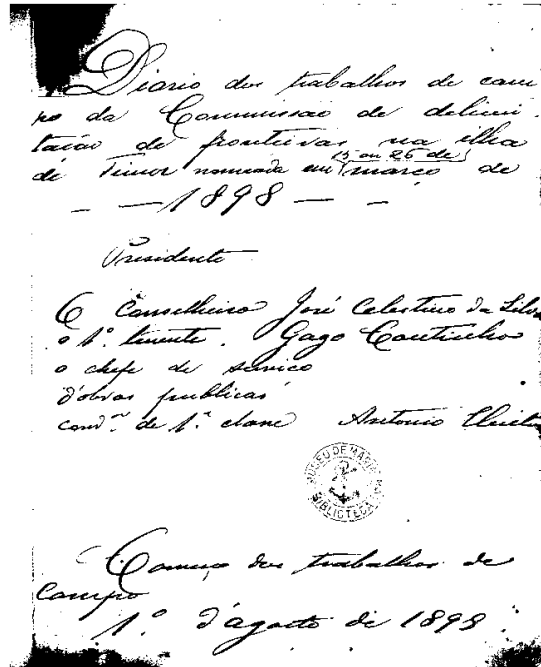 Diario dos trabalhos de cam
po da Commissão de delimi-
tação de fronteiras na ilha
15 ou 26 de
de Timor nomeada em março de
— — 1898 — —
Presidente
O Conselheiro José Celestino da Silva
o 1º tenente. Gago Coutinho
o chefe de serviço
d'obras publicas
condᵒʳ de 1ª classe Antonio
MUSEU DE MARINHA
BIBLIOTECA
Começo dos trabalhos de
campo
1º d'agosto de 1898